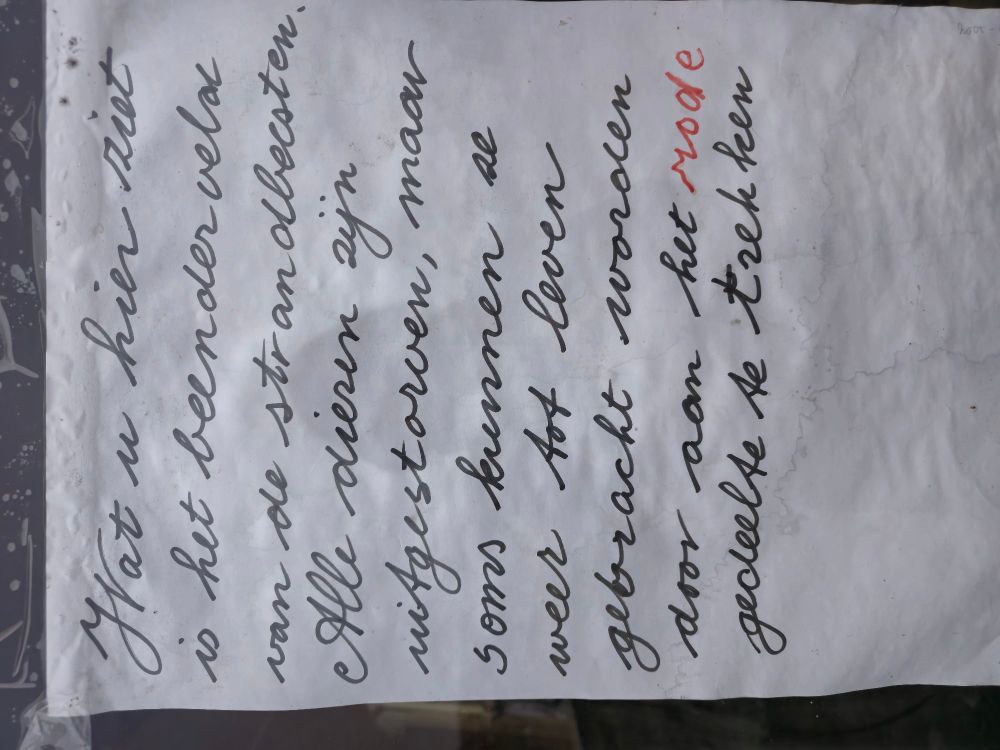 Wat u hier ziet
is het beenderveld
van de strandbeesten.
Alle dieren zijn
uitgestorven, maar
soms kunnen ze
weer tot leven
gebracht worden
door aan het rode
gedeelte te trekken